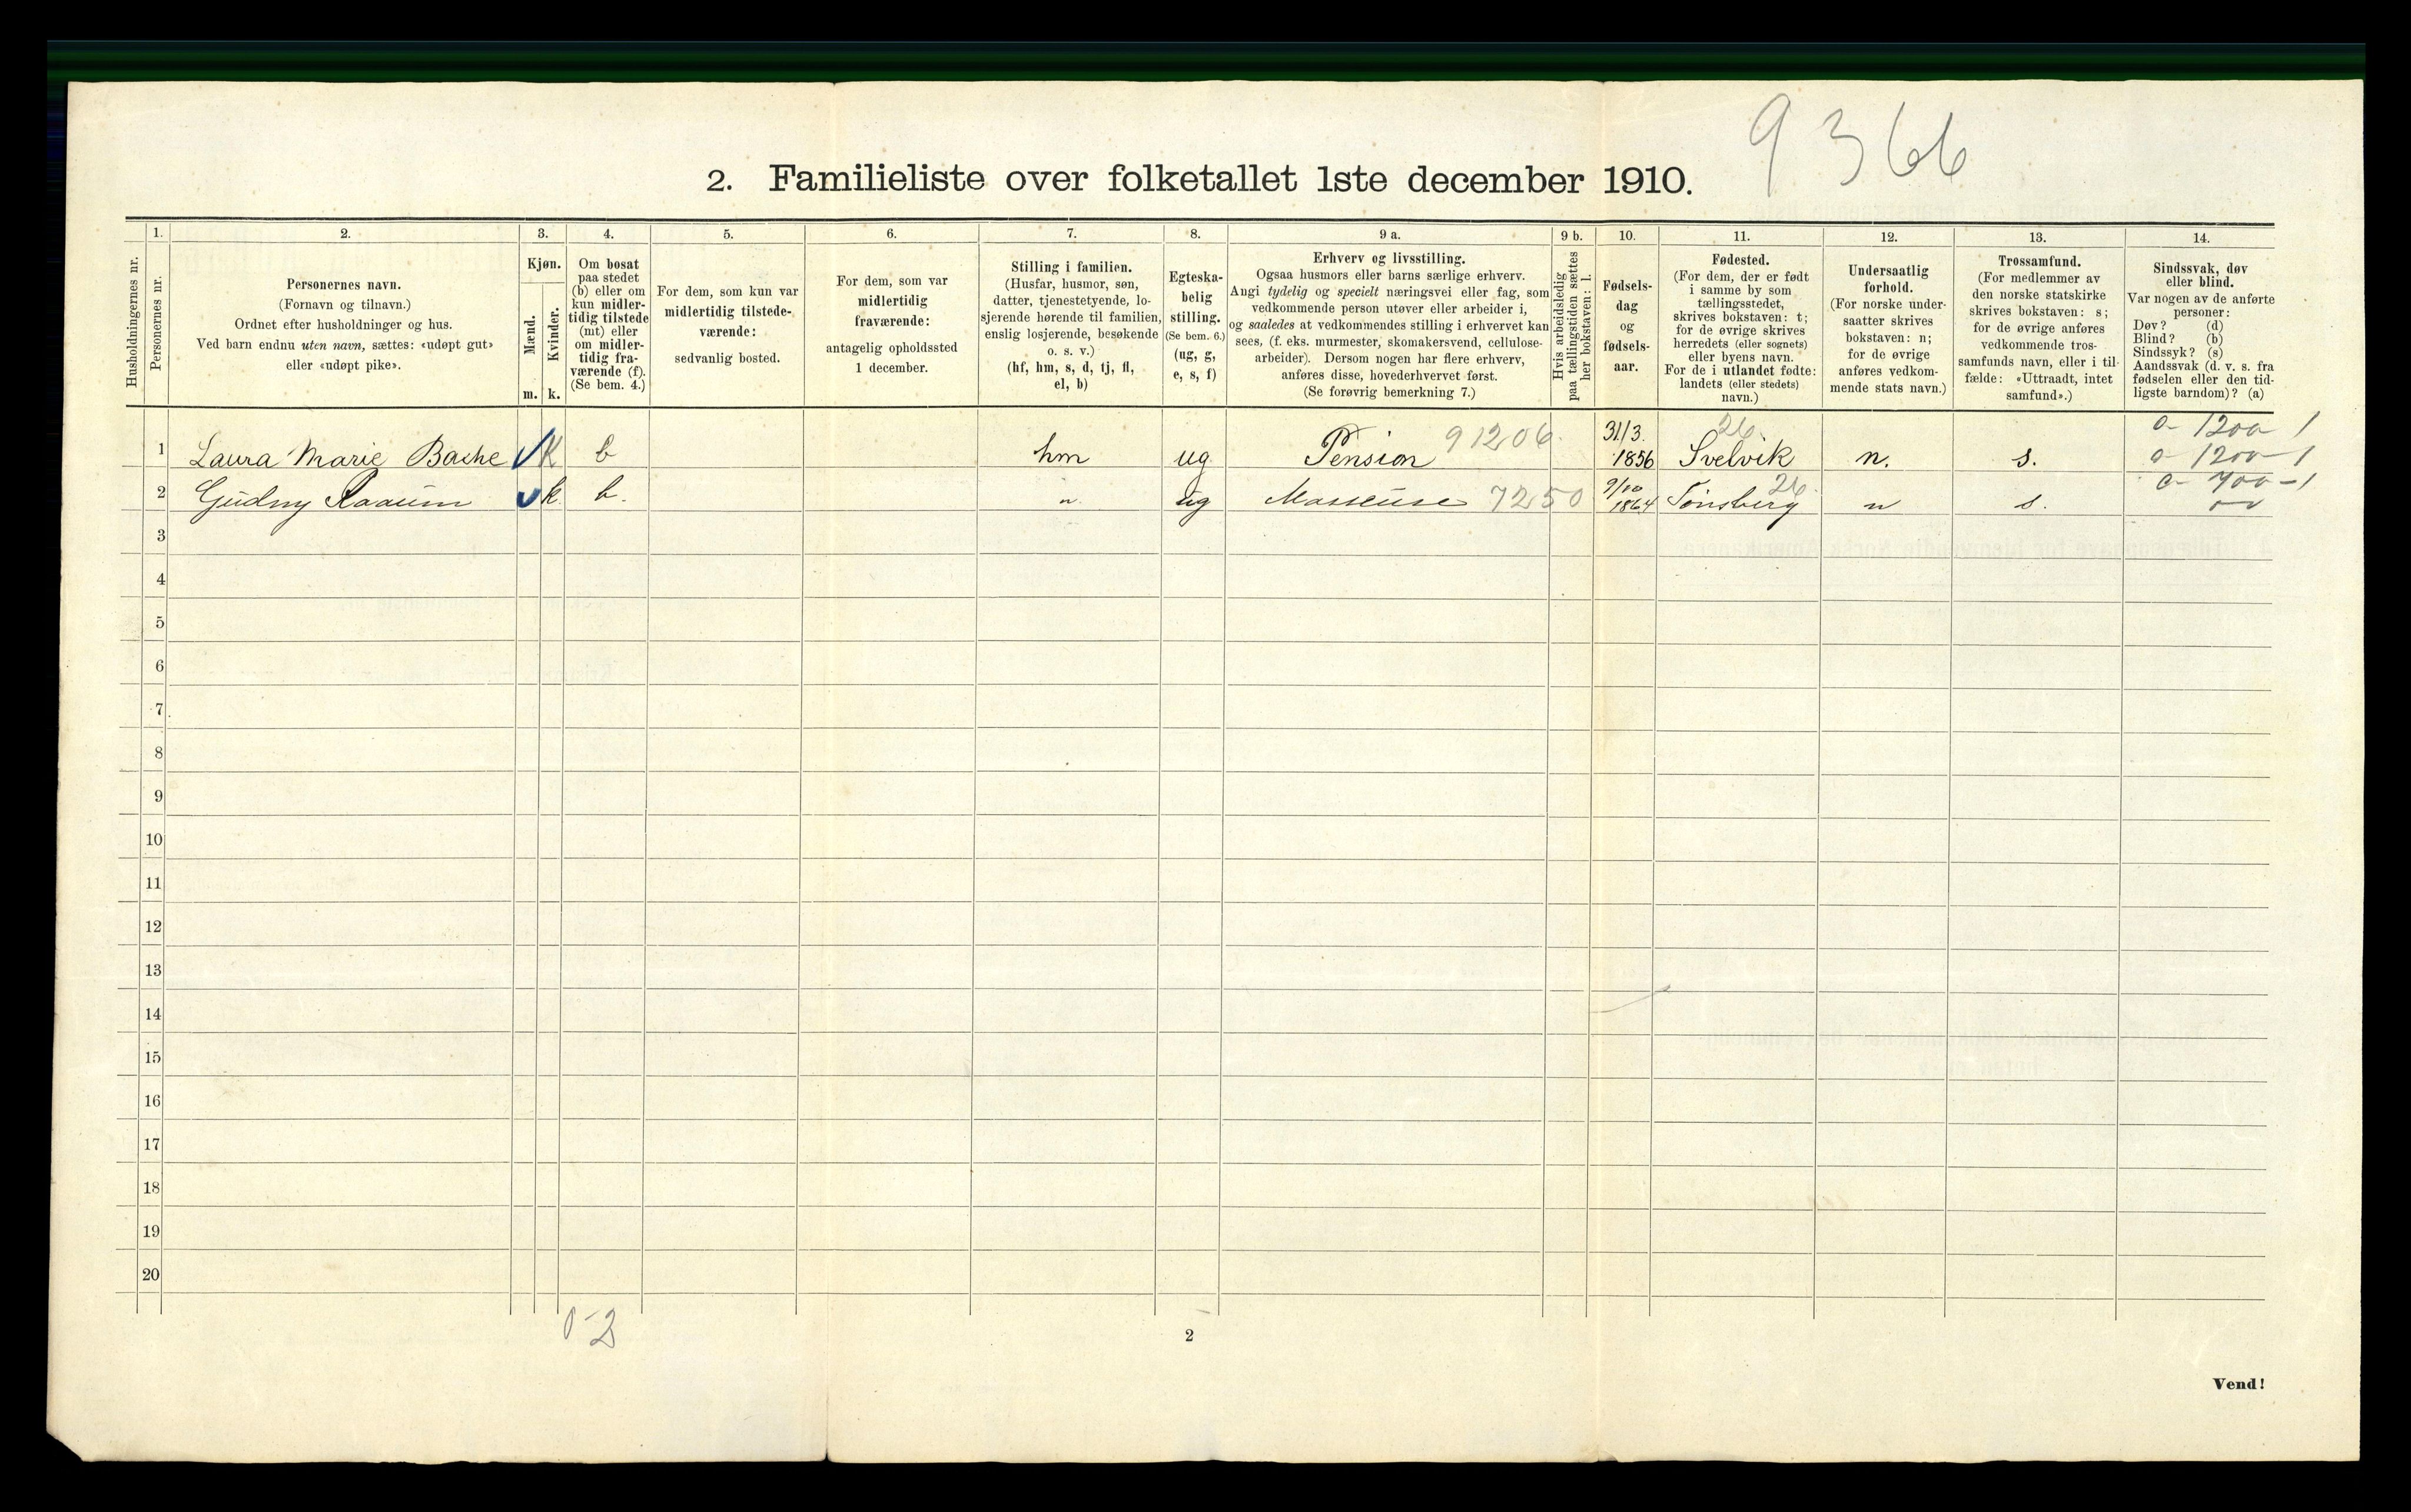 9366
2. Familieliste over folketallet 1ste december 1910.
Husholdningernes nr.
1.
Personernes nr.
2.
Personernes navn.
(Fornavn og tilnavn.)
Ordnet efter husholdninger og hus.
Ved barn endnu uten navn, sættes: «udøpt gut»
eller «udøpt pike».
3.
Kjøn.
Mænd.
Kvinder.
m. k.
4.
Om bosat
paa stedet
(b) eller om
kun midler-
tidig tilstede
(mt) eller
om midler-
tidig fra-
værende (f).
(Se bem. 4.)
5.
For dem, som kun var
midlertidig tilstede-
værende:
sedvanlig bosted.
6.
For dem, som var
midlertidig
fraværende:
antagelig opholdssted
1 december.
7.
Stilling i familien.
(Husfar, husmor, søn,
datter, tjenestetyende, lo-
sjerende hørende til familien,
enslig losjerende, besøkende
o. s. v.)
(hf, hm, s, d, tj, fl,
el, b)
8.
Egteska-
belig
stilling.
(Se bem. 6.)
(ug, g,
e, s, f)
9 a.
Erhverv og livsstilling.
Ogsaa husmors eller barns særlige erhverv.
Angi tydelig og specielt næringsvei eller fag, som
vedkommende person utøver eller arbeider i,
og saaledes at vedkommendes stilling i erhvervet kan
sees, (f. eks. murmester, skomakersvend, cellulose-
arbeider). Dersom nogen har flere erhverv,
anføres disse, hovederhvervet først.
(Se forøvrig bemerkning 7.)
9 b.
Hvis arbeidsledig
paa tællingstiden sættes
her bokstaven: l.
10.
Fødsels-
dag
og
fødsels-
aar.
11.
Fødested.
(For dem, der er født
i samme by som
tællingsstedet,
skrives bokstaven: t;
for de øvrige skrives
herredets (eller sognets)
eller byens navn.
For de i utlandet fødte:
landets (eller stedets)
navn.)
12.
Undersaatlig
forhold.
(For norske under-
saatter skrives
bokstaven: n;
for de øvrige
anføres vedkom-
mende stats navn.)
13.
Trossamfund.
(For medlemmer av
den norske statskirke
skrives bokstaven: s;
for de øvrige anføres
vedkommende tros-
samfunds navn, eller i til-
fælde: «Uttraadt, intet
samfund».)
14.
Sindssvak, døv
eller blind.
Var nogen av de anførte
personer:
Døv? (d)
Blind? (b)
Sindssyk? (s)
Aandssvak (d. v. s. fra
fødselen eller den tid-
ligste barndom)? (a)
1 Laura Marie Bache K b hm ug Pension 91206 31/3. 1856 26 Svelvik n. s. 0 - 1200 1
0 - 1200 - 1
2 Gudny Raaum k b. " ug Masseuse 7250 1864 Tønsberg 26 n s. 0 - 400 - 1
3
4
5
6
7
8
9
10
11
12
13
14
15
16
17
18
19
20
0-2
2
Vend!